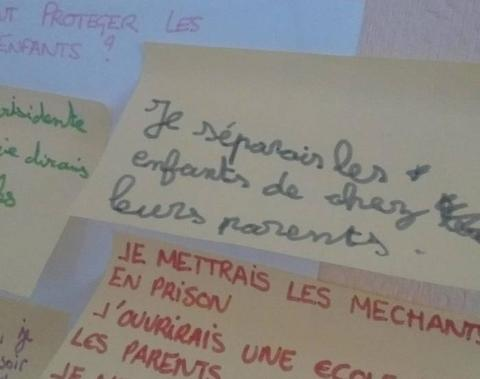 PROTEGER LES
ENFANTS ?
résidente
je dirais
Je séparais les
enfants de chez
leurs parents.
JE METTRAIS LES MECHANTS
EN PRISON
J'OUVRIRAIS UNE ECOLE
LES PARENTS
je